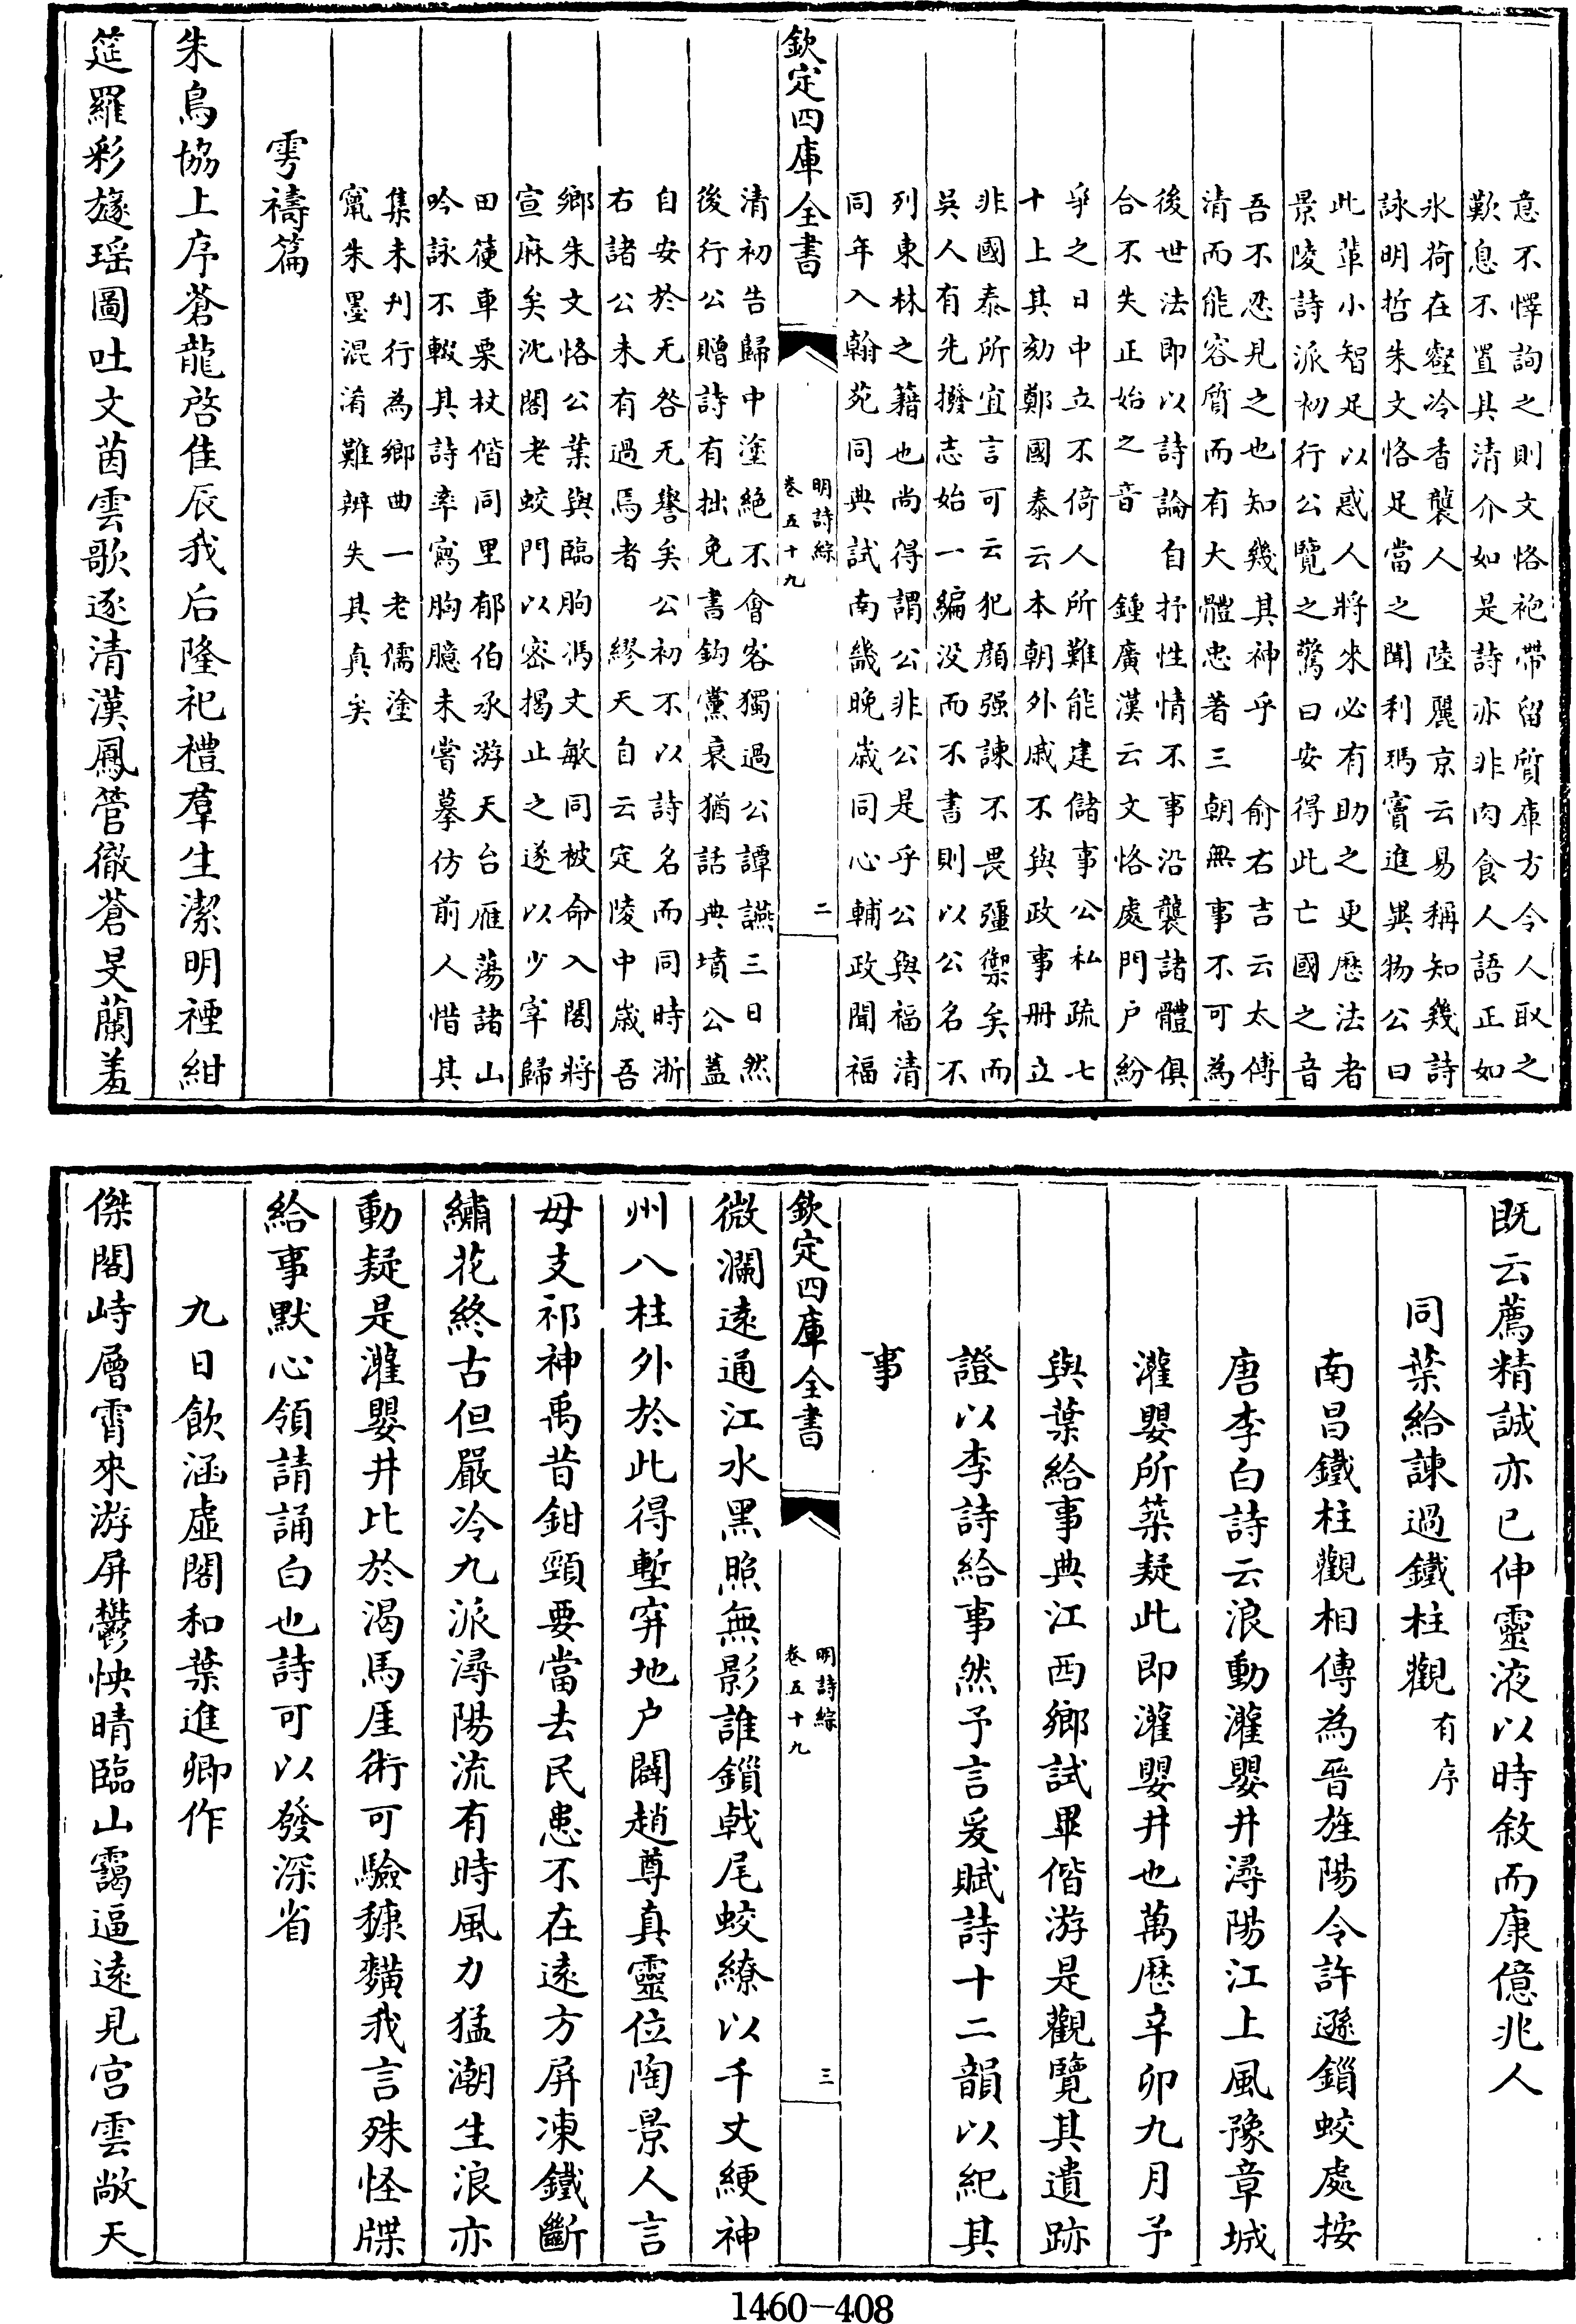 意不懌詢之則文恪袍帶留質庫方今人取之
歎息不置其清介如是詩亦非肉食人語正如
氷荷在壑冷香襲人　陸麗京云易稱知幾詩
詠明哲朱文恪足當之聞利瑪竇進異物公曰
此輩小智足以惑人將來必有助之更歴法者
景陵詩派初行公覽之驚曰安得此亡國之音
吾不忍見之也知幾其神乎　俞右吉云太傅
清而能容質而有大體忠著三朝無事不可為
後世法即以詩論自抒性情不事沿襲諸體俱
合不失正始之音　鍾廣漢云文恪處門户紛
爭之日中立不倚人所難能建儲事公私疏七
十上其劾鄭國泰云本朝外戚不與政事册立
非國泰所宜言可云犯顔强諫不畏彊禦矣而
吳人有先撥志始一編没而不書則以公名不
列東林之籍也尚得謂公非公是乎公與福清
同年入翰苑同典試南畿晚歳同心輔政聞福
欽定四庫全書
明詩綜
卷五十九
二
清初告歸中塗絶不會客獨過公譚讌三日然
後行公贈詩有拙免書鈎黨衰猶話典墳公蓋
自安於无咎无譽矣公初不以詩名而同時浙
右諸公未有過焉者繆天自云定陵中歳吾
鄉朱文恪公葉與臨朐馮文敏同被命入閣將
宣麻矣沈閣老蛟門以密揭止之遂以少宰歸
田篗車栗杖偕同里郁伯承游天台雁蕩諸山
吟詠不輟其詩率寫胸臆未嘗摹仿前人惜其
集未刋行為鄉曲一老儒塗
竄朱墨混淆難辨失其真矣
雩禱篇
朱鳥協上序蒼龍啓佳辰我后隆祀禮羣生潔明禋紺
筵羅彩旞瑶圖吐文茵雲歌逐清漢鳳管徹蒼旻蘭羞
既云薦精誠亦已伸靈液以時敘而康億兆人
同葉給諫過鐵柱觀有序
南昌鐵柱觀相傳為晉旌陽令許遜鎖蛟處按
唐李白詩云浪動灌嬰井潯陽江上風豫章城
灌嬰所築疑此即灌嬰井也萬歴辛卯九月予
與葉給事典江西鄉試畢偕游是觀覽其遺跡
證以李詩給事然予言爰賦詩十二韻以紀其
事
欽定四庫全書
明詩綜
卷五十九
三
微瀾遠通江水黑照無影誰鎻戟尾蛟繚以千丈綆神
州八柱外於此得塹穽地户闢趙尊真靈位陶景人言
毋支祁神禹昔鉗頸要當去民患不在遠方屏凍鐵斷
繡花終古但嚴冷九派潯陽流有時風力猛潮生浪亦
動疑是灌嬰井比於渴馬厓術可驗䅘䵃我言殊怪牒
給事默心領請誦白也詩可以發深省
九日飲涵虛閣和葉進卿作
傑閣峙層霄來游屏鬱怏晴臨山靄逼遠見宫雲敞天
1460—408